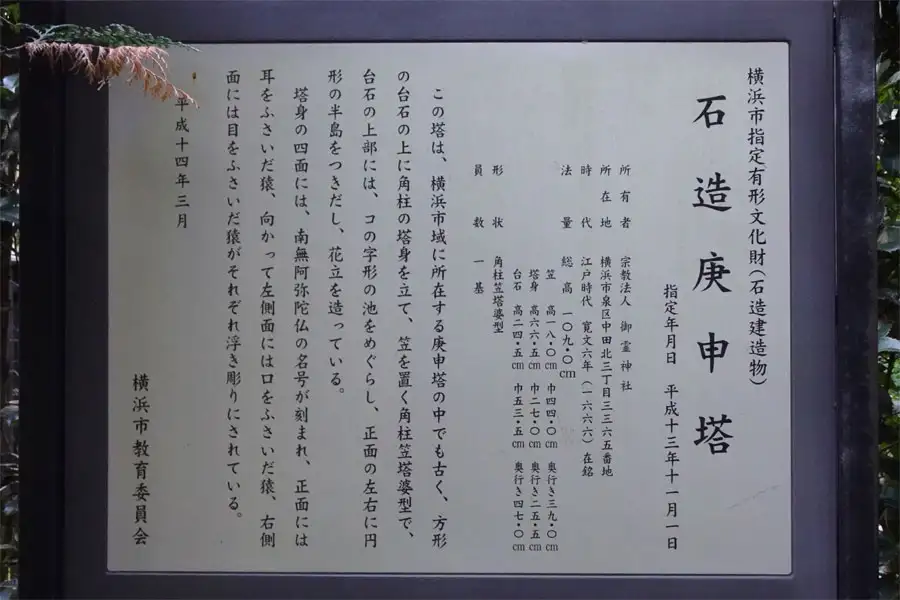 横浜市指定有形文化財(石造建造物)
石造庚申塔
指定年月日 平成十三年十一月一日
所有者 宗教法人 御霊神社
所在地 横浜市泉区中田北三丁目三三六五番地
時代 江戸時代 寛文六年(一六六六)在銘
法量 総高 一〇九・〇cm
笠 高一八・〇cm 巾四四・〇cm 奥行き三九・〇cm
塔身 高六六・五cm 巾二七・〇cm 奥行き二五・五cm
台石 高二四・五cm 巾五三・五cm 奥行き四七・〇cm
形状 角柱笠塔婆型
員数 一基
この塔は、横浜市域に所在する庚申塔の中でも古く、方形
の台石の上に角柱の塔身を立て、笠を置く角柱笠塔婆型で、
台石の上部には、コの字形の池をめぐらし、正面の左右に円
形の半島をつきだし、花立を造っている。
塔身の四面には、南無阿弥陀仏の名号が刻まれ、正面には
耳をふさいだ猿、向かって左側面には口をふさいだ猿、右側
面には目をふさいだ猿がそれぞれ浮き彫りにされている。
平成十四年三月
横浜市教育委員会